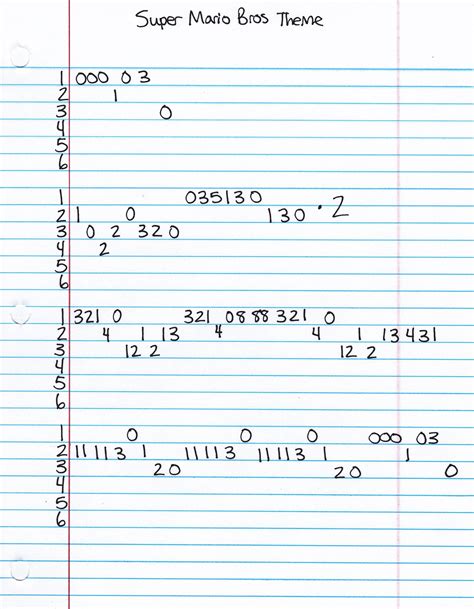 Super Mario Bros Theme
1 000 03
2 1
3 0
4
5
6
1 035130
2 1 0 130 · 2
3 0 2 320
4 2
5
6
1 321 0 321 08 88 321 0
2 4 1 13 4 4 1 13 431
3 12 2 12 2
4
5
6
1 0 0 0 000 03
2 11113 1 11113 11113 1 1
3 20 20 0
4
5
6